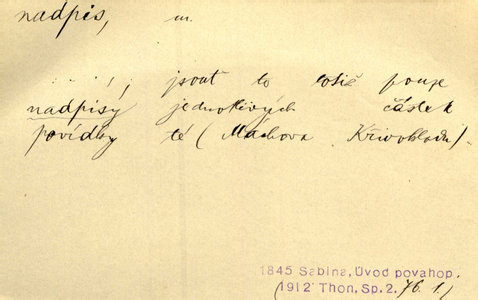 nadpis, m.
. . . . ; jsouť to totiž pouze
nadpisy jednotlivých částek
povídky té (Máchova Křivokladu).
1845 Sabina, Úvod povahop.
(1912 Thon, Sp. 2. 76. 1.)